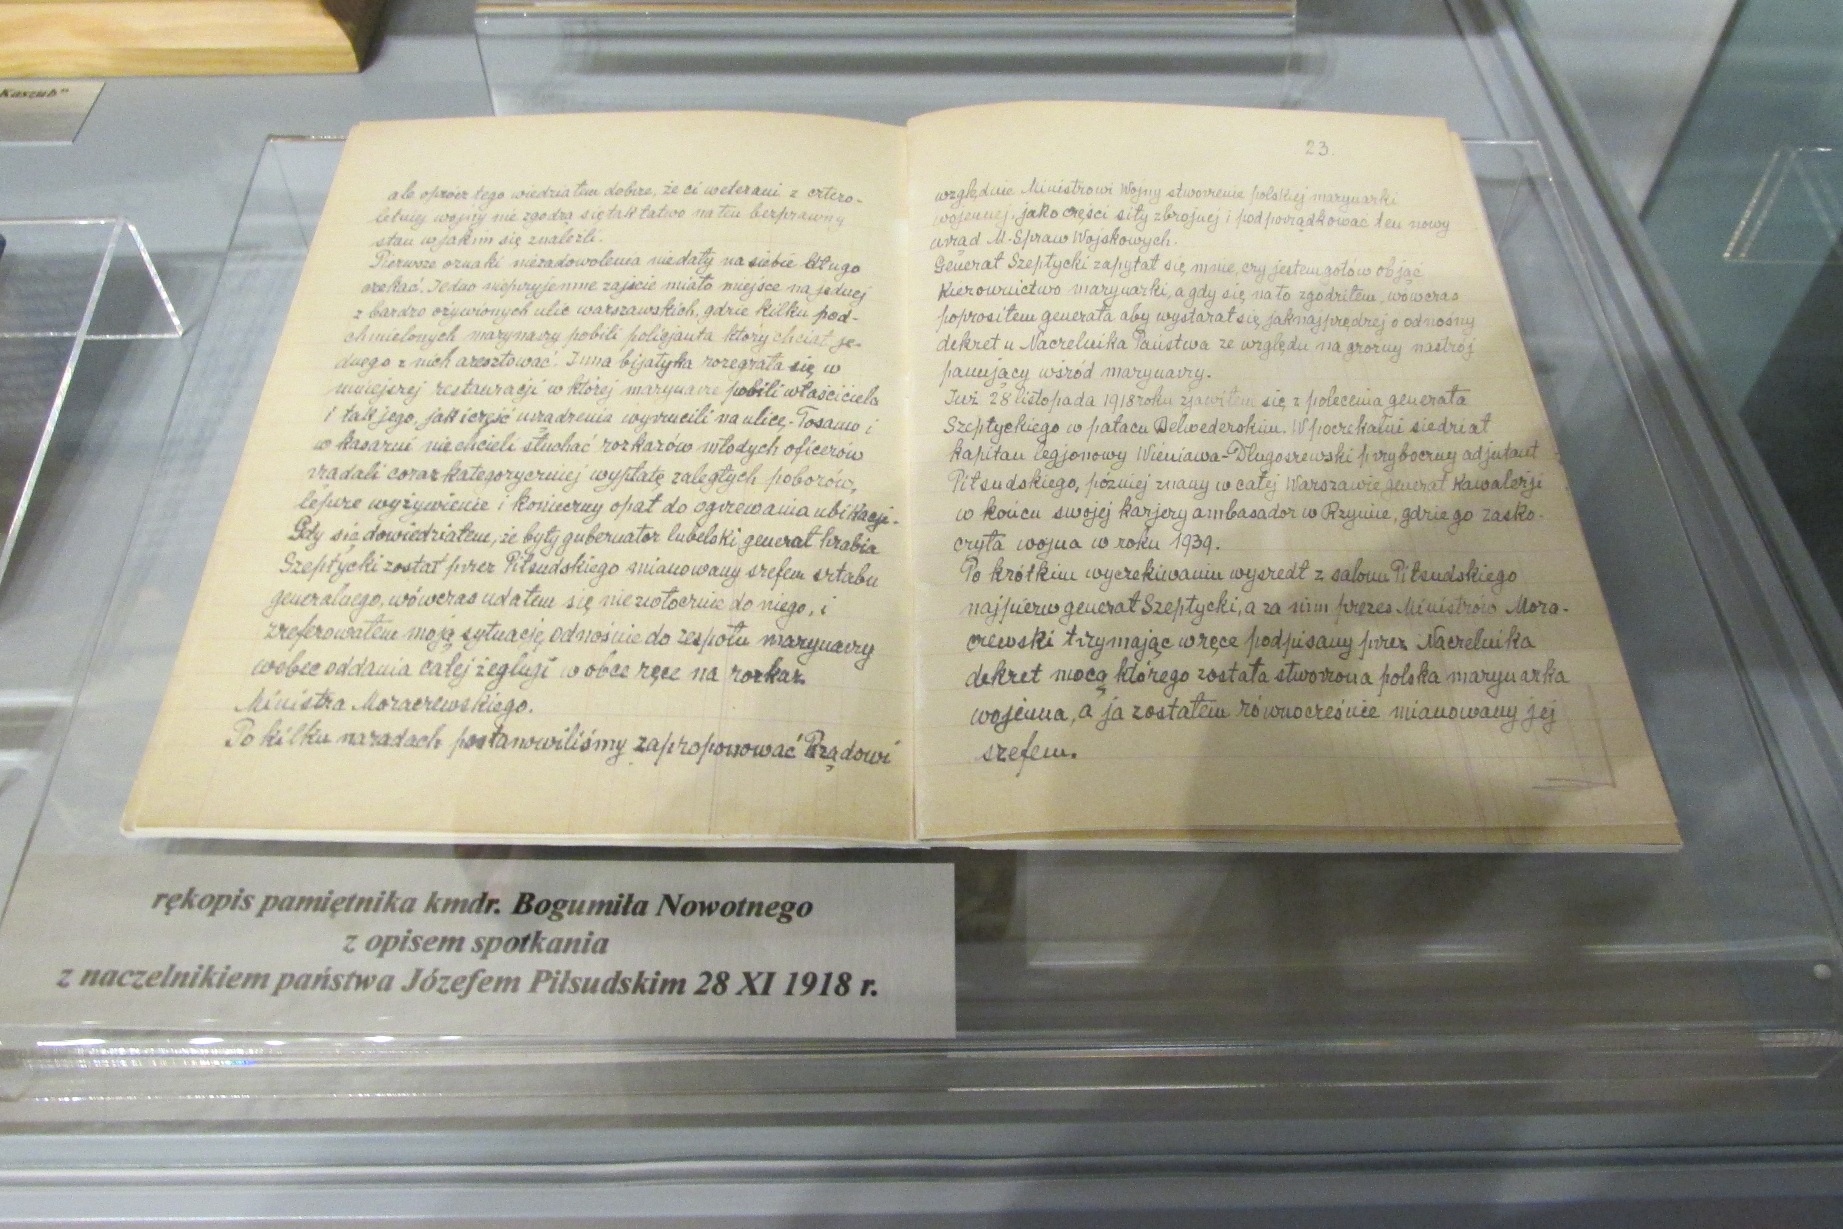 Kaszub"
ale oprócz tego wiedziałem dobrze, że ci weterani z cztero-
letniej wojny nie zgodzą się tak łatwo na ten bezprawny
stan w jakim się znaleźli.
Pierwsze oznaki niezadowolenia nie dały na siebie długo
czekać. Jedno nieprzyjemne zajście miało miejsce na jednej
z bardzo ożywionych ulic warszawskich, gdzie kilku pod-
chmielonych marynarzy pobili policjanta który chciał je-
dnego z nich aresztować. Inna bijatyka rozegrała się w
mniejszej restauracji w której marynarze pobili właściciela
i tak jego, jak i część urządzenia wyrzucili na ulicę. Tosamo i
w kasarni nie chcieli słuchać rozkazów młodych oficerów
żądali coraz kategoryczniej wypłatę zaległych poborów,
lepsze wyżywienie i konieczny opał do ogrzewania ubikacji.
Gdy się dowiedziałem, że były gubernator lubelski generał hrabia
Szeptycki został przez Piłsudskiego mianowany szefem sztabu
generalnego, wówczas udałem się niezwłocznie do niego, i
zreferowałem moją sytuację odnośnie do zespołu marynarzy
wobec oddania całej żeglugi w obce ręce na rozkaz
Ministra Moraczewskiego.
Po kilku naradach postanowiliśmy zaproponować Rządowi
23.
względnie Ministrowi Wojny stworzenie polskiej marynarki
wojennej, jako części siły zbrojnej i podporządkować ten nowy
urząd M. Spraw Wojskowych.
Generał Szeptycki zapytał się mnie, czy jestem gotów objąć
Kierownictwo marynarki, a gdy się na to zgodziłem, wówczas
poprosiłem generała aby wystarał się jaknajprędzej o odnośny
dekret u Naczelnika Państwa ze względu na groźny nastrój
panujący wśród marynarzy.
Już 28 listopada 1918 roku zjawiłem się z polecenia generała
Szeptyckiego w pałacu Belwederskim. W poczekalni siedział
kapitan legjonowy Wieniawa-Długoszewski przyboczny adjutant
Piłsudskiego, później znany w całej Warszawie generał Kawalerji
w końcu swojej karjery ambasador w Rzymie, gdzie go zasko-
czyła wojna w roku 1939.
Po krótkim wyczekiwaniu wyszedł z salonu Piłsudskiego
najpierw generał Szeptycki, a za nim prezes Ministrów Mora-
czewski trzymając w ręce podpisany przez Naczelnika
dekret mocą którego została stworzona polska marynarka
wojenna, a ja zostałem równocześnie mianowany jej
szefem.
rękopis pamiętnika kmdr. Bogumiła Nowotnego
z opisem spotkania
z naczelnikiem państwa Józefem Piłsudskim 28 XI 1918 r.